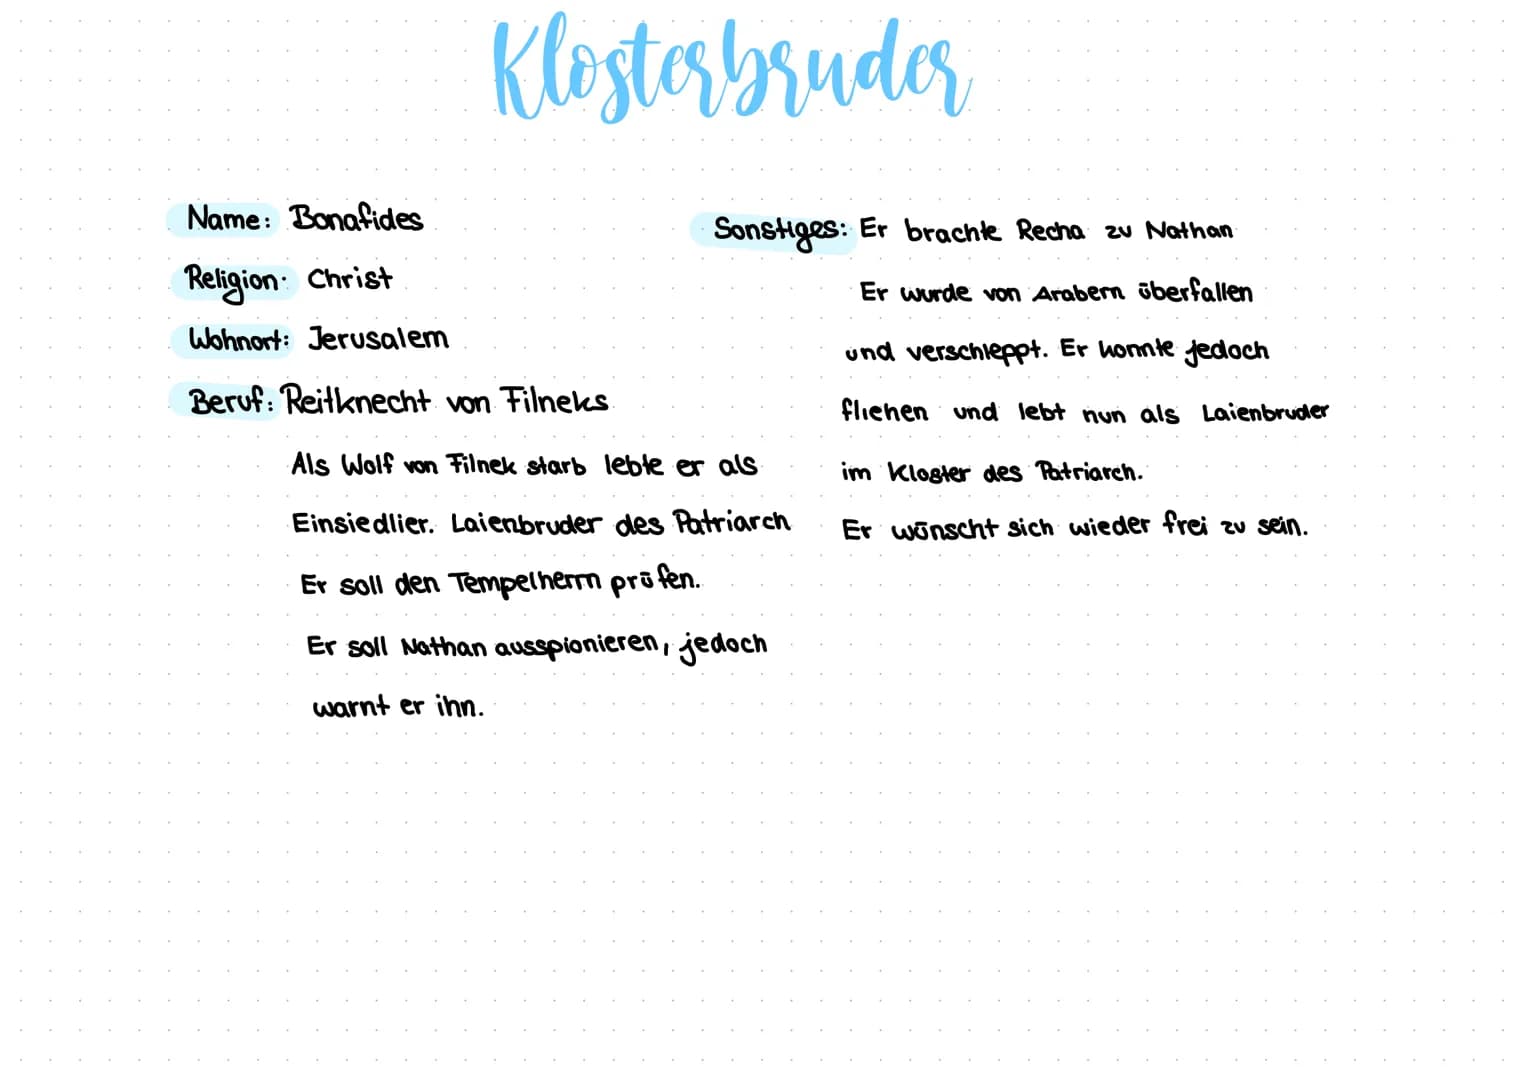 Klosterbruder
Name: Bonafides
Religion: Christ
Wohnort: Jerusalem
Beruf: Reitknecht von Filneks
Als Wolf von Filnek starb lebte er als
Einsiedlier. Laienbruder des Patriarch
Er soll den Tempelherrn prüfen.
Er soll Nathan ausspionieren, jedoch
warnt er ihn.
Sonstiges: Er brachte Recha zu Nathan
Er wurde von Arabern überfallen
und verschleppt. Er konnte jedoch
fliehen und lebt nun als Laienbruder
im Kloster des Patriarch.
Er wünscht sich wieder frei zu sein.